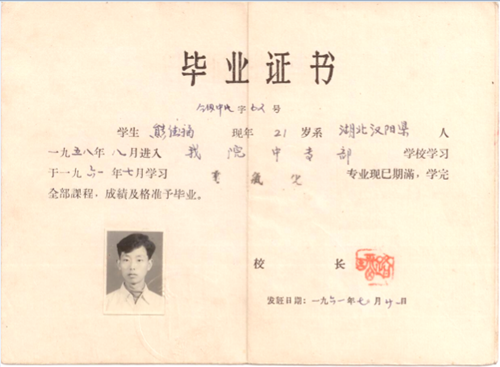 毕业证书
字 号
学生 现年 21 岁系 湖北汉阳県 人
一九五八年八月进入 我院中专部 学校学习
于一九六一年七月学习 专业现已期满，学完
全部課程，成績及格准予毕业。
校 長
发証日期：一九六一年七月廿一日